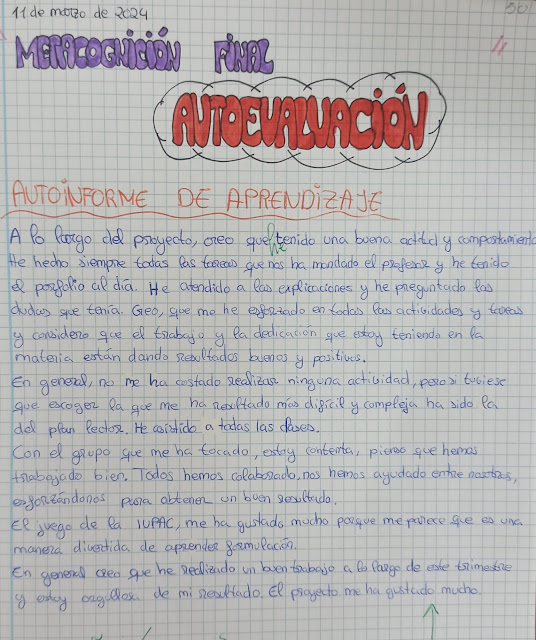 11 de marzo de 2024
50
METACOGNICIÓN FINAL
AUTOEVALUACIÓN
AUTOINFORME DE APRENDIZAJE
A lo largo del proyecto, creo que he tenido una buena actitud y comportamiento
He hecho siempre todas las tareas que nos ha mandado el profesor y he tenido
el porfolio al día. He atendido a las explicaciones y he preguntado las
dudas que tenía. Creo, que me he esforzado en todas las actividades y tareas
y considero que el trabajo y la dedicación que estoy teniendo en la
materia están dando resultados buenos y positivos.
En general, no me ha costado realizar ninguna actividad, pero si tuviese
que escoger la que me ha resultado más difícil y compleja ha sido la
del plan lector. He asistido a todas las clases.
Con el grupo que me ha tocado, estoy contenta, pienso que hemos
trabajado bien. Todos hemos colaborado, nos hemos ayudado entre nosotros,
esforzándonos para obtener un buen resultado.
El juego de la IUPAC, me ha gustado mucho porque me parece que es una
manera divertida de aprender formulación.
En general creo que he realizado un buen trabajo a lo largo de este trimestre
y estoy orgullosa de mi resultado. El proyecto me ha gustado mucho.